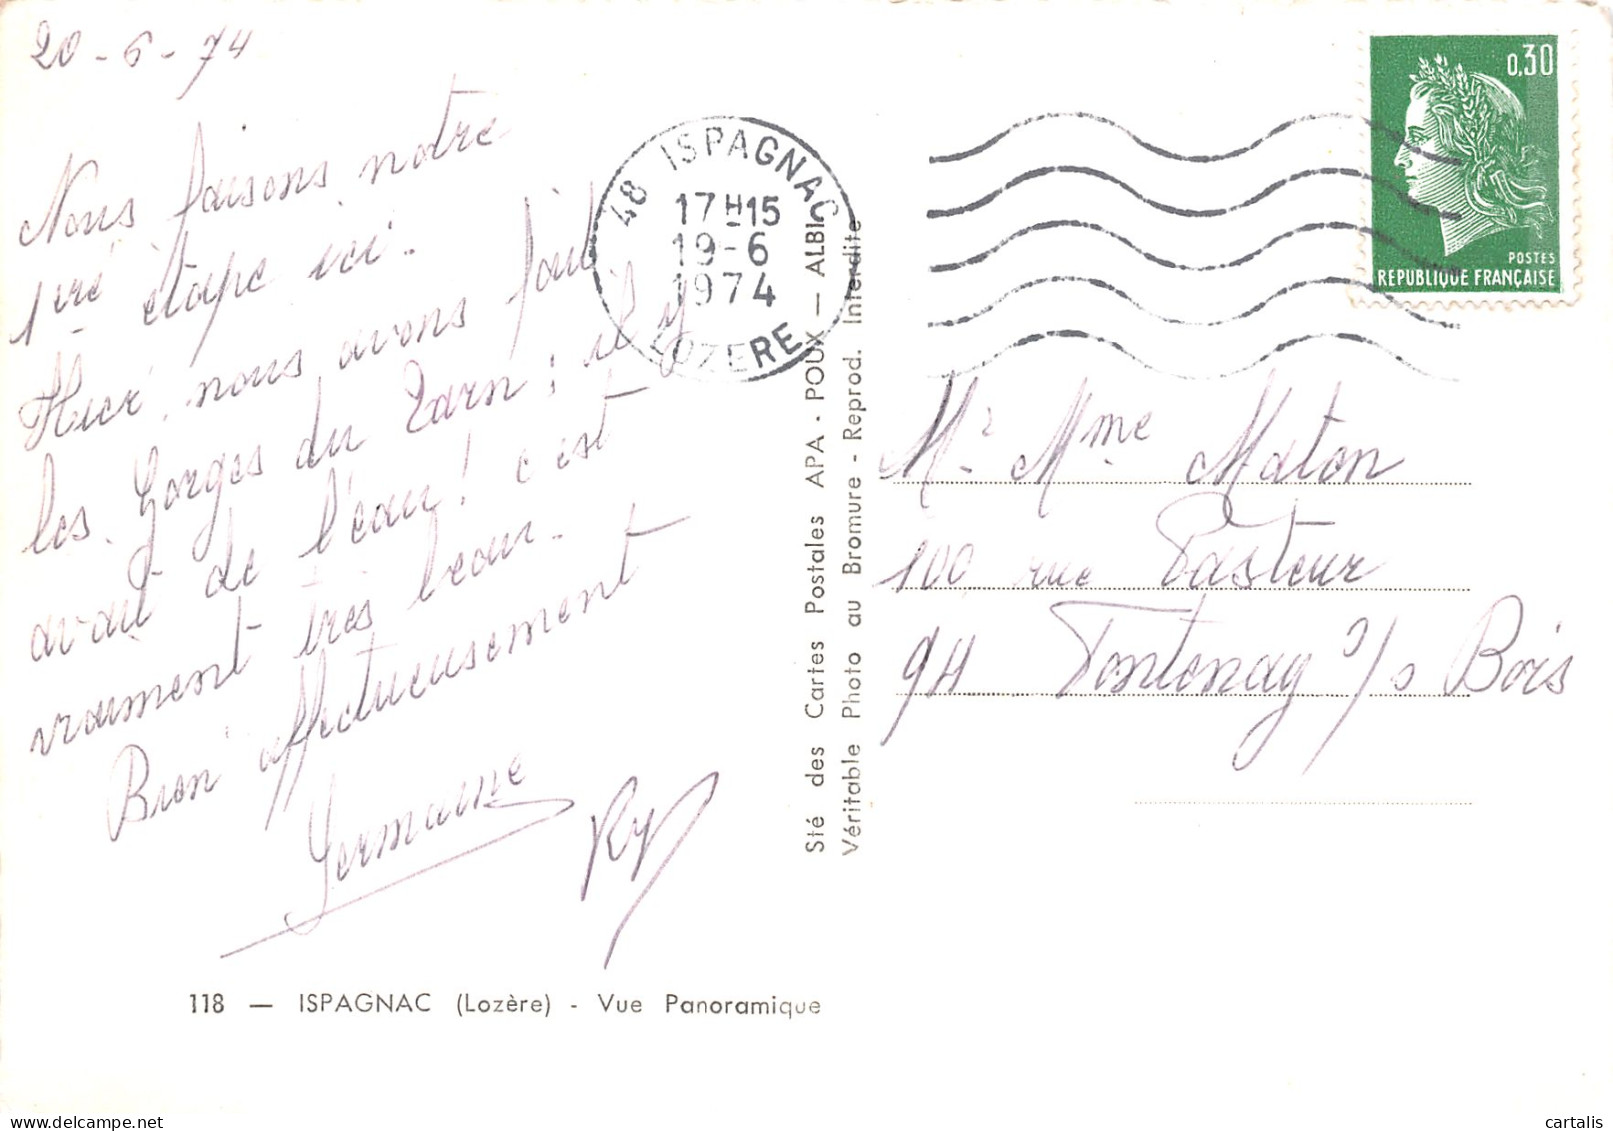 20-6-74
Nous faisons notre
1ré étape ici.
Hier, nous avons fait
les Gorges du Tarn ; il y
avait de l'eau ! c'est
vraiment très beau.
Bien affectueusement
Germaine
48 ISPAGNAC
17H15
19-6
1974
LOZERE
0,30
POSTES
REPUBLIQUE FRANÇAISE
Sté des Cartes Postales APA - POUX — ALBI
Véritable Photo au Bromure - Reprod. Interdite
Mr Mme Maton
100 rue Pasteur
94 Fontenay s/s Bois
118 — ISPAGNAC (Lozère) - Vue Panoramique
cartalis